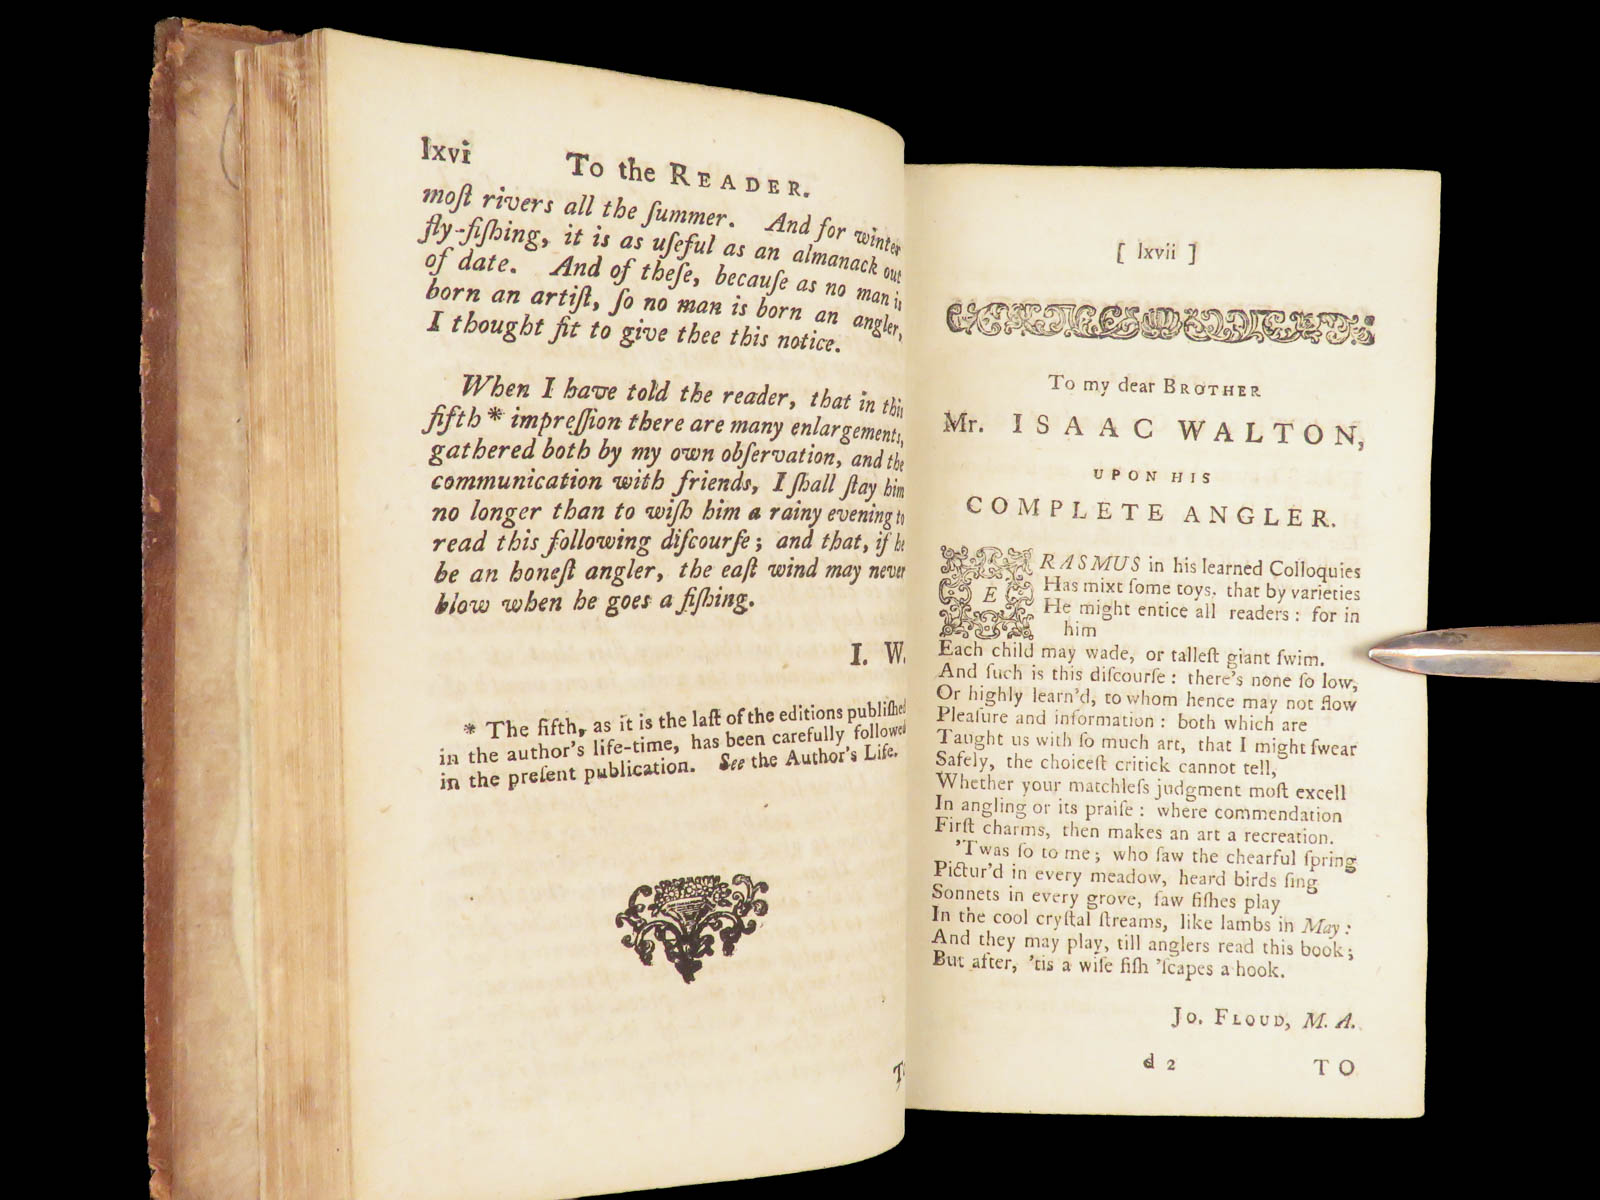 lxvi To the READER.
moſt rivers all the ſummer. And for winter
fly-fiſhing, it is as uſeful as an almanack out
of date. And of theſe, becauſe as no man is
born an artiſt, ſo no man is born an angler,
I thought fit to give thee this notice.
When I have told the reader, that in this
fifth * impreſſion there are many enlargements,
gathered both by my own obſervation, and the
communication with friends, I ſhall ſtay him
no longer than to wiſh him a rainy evening to
read this following diſcourſe; and that, if he
be an honeſt angler, the eaſt wind may never
blow when he goes a fiſhing.
I. W.
* The fifth, as it is the laſt of the editions publiſhed
in the author's life-time, has been carefully followed
in the preſent publication. See the Author's Life.
[ lxvii ]
To my dear BROTHER
Mr. ISAAC WALTON,
UPON HIS
COMPLETE ANGLER.
ERASMUS in his learned Colloquies
Has mixt ſome toys, that by varieties
He might entice all readers: for in
him
Each child may wade, or talleſt giant ſwim.
And ſuch is this diſcourſe: there's none ſo low,
Or highly learn'd, to whom hence may not flow
Pleaſure and information: both which are
Taught us with ſo much art, that I might ſwear
Safely, the choiceſt critick cannot tell,
Whether your matchleſs judgment moſt excell
In angling or its praiſe: where commendation
Firſt charms, then makes an art a recreation.
'Twas ſo to me; who ſaw the chearful ſpring
Pictur'd in every meadow, heard birds ſing
Sonnets in every grove, ſaw fiſhes play
In the cool cryſtal ſtreams, like lambs in May:
And they may play, till anglers read this book;
But after, 'tis a wiſe fiſh 'ſcapes a hook.
JO. FLOUD, M. A.
d 2 TO